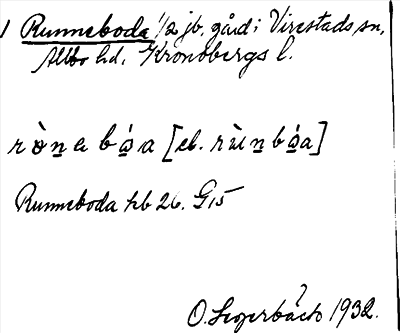 1 Runneboda 1/2 jb. gård i Virestads sn,
Allbo hd, Kronobergs l.
rò̤n̲e bó̤a [el.
Runneboda hb 26. G15
O. Segerbäck 1932.